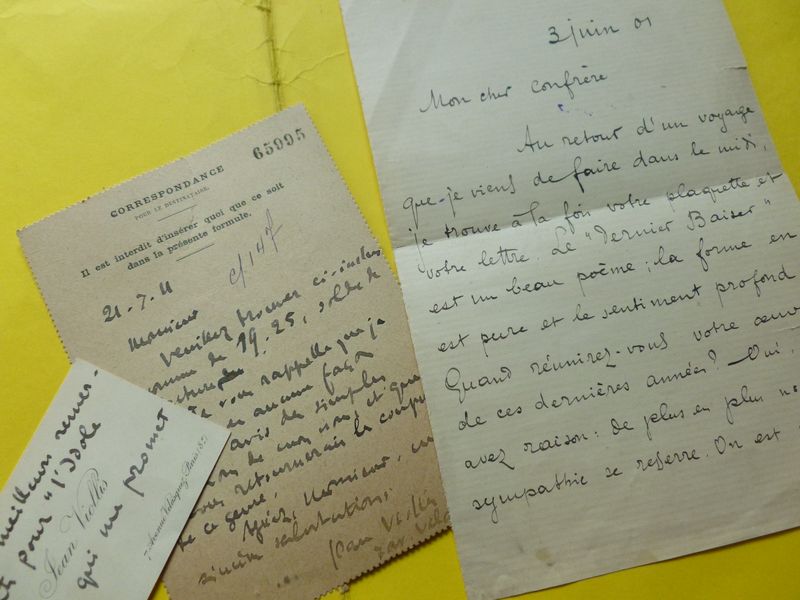 3 juin 01
Mon cher Confrère
Au retour d'un voyage
que je viens de faire dans le midi,
je trouve à la fois votre plaquette et
votre lettre. Le "Dernier Baiser"
est un beau poème ; la forme en
est pure et le sentiment profond
Quand réunirez-vous votre œuv
de ces dernières années? Oui,
avez raison : de plus en plus
sympathie se resserre. On est
65995
CORRESPONDANCE
POUR LE DESTINATAIRE.
Il est interdit d'insérer quoi que ce soit
dans la présente formule.
21-7-11
Monsieur
Veuillez trouver ci-inclus
somme de 19.25, solde de
rappelle que je
en aucune façon
avis de simples
de mon nom, et que
vous retournerais la
de ce genre.
Agréez, Monsieur,
salutations
Jean
meilleurs remer-
pour "l'Idole
Jean Viollis
7, Avenue Velasquez, Paris (8e)
qui me promet